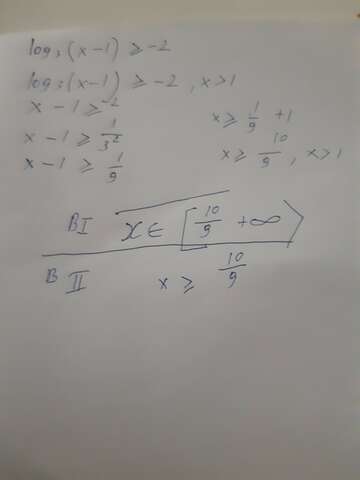 log₃(x-1) ≥ -2
log₃(x-1) ≥ -2 , x>1
x - 1 ≥ ⁻²
x - 1 ≥ 1/3²
x - 1 ≥ 1/9
x ≥ 1/9 + 1
x ≥ 10/9 , x>1
BI x ∈ [10/9 +∞⟩
B II x ≥ 10/9